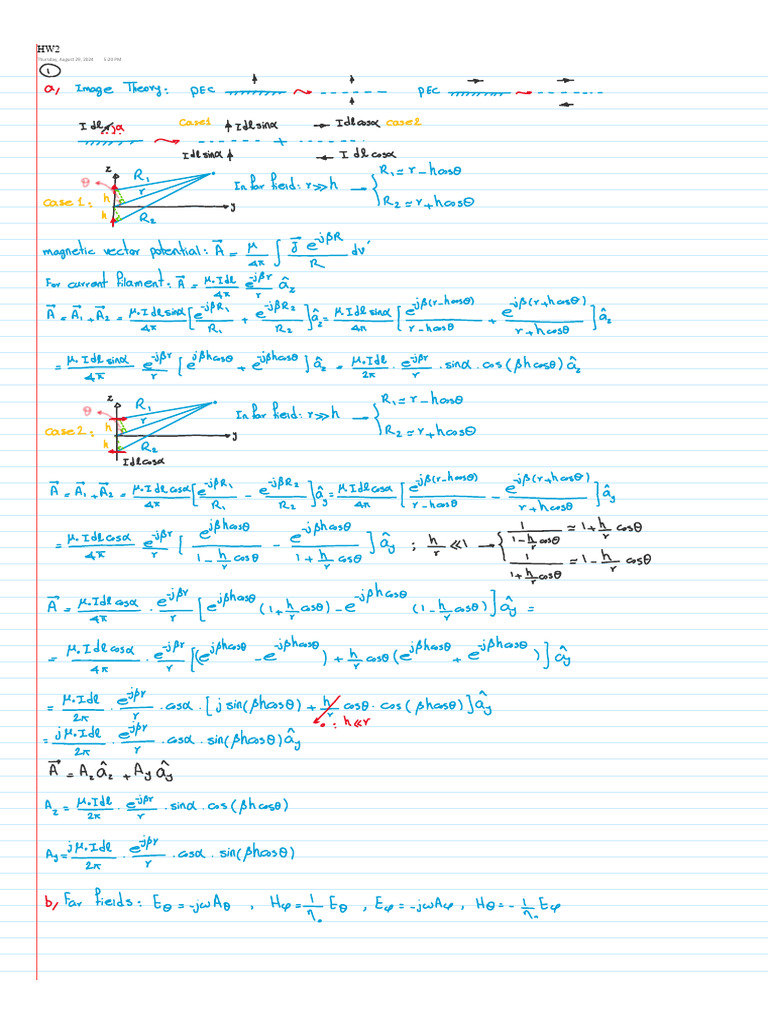 HW2
Thursday, August 29, 2024 5:20 PM
1
a, Image Theory: PEC PEC
Idl α Case1 Idl sinα Idl cosα Case2
Idl sinα Idl cosα
z θ R₁ h r R₂ h y
Case 1: In far field: r≫h → { R₁ = r - hcosθ
R₂ = r + hcosθ
magnetic vector potential: A⃗ = μ/4π ∫ J⃗ e^{-jβR}/R dv'
For current filament: A⃗ = μ₀Idl/4π e^{-jβr}/r â_z
A⃗ = A⃗₁ + A⃗₂ = μ₀Idl sinα/4π [e^{-jβR₁}/R₁ + e^{-jβR₂}/R₂] â_z = μ₀Idl sinα/4π [e^{-jβ(r-hcosθ)}/(r-hcosθ) + e^{-jβ(r+hcosθ)}/(r+hcosθ)] â_z
= μ₀Idl sinα/4π e^{-jβr}/r [e^{jβhcosθ} + e^{-jβhcosθ}] â_z = μ₀Idl/2π · e^{-jβr}/r · sinα · cos(βhcosθ) â_z
z θ R₁ h r R₂ h y
Case 2: In far field: r≫h → { R₁ = r - hcosθ
R₂ = r + hcosθ
Idl cosα
A⃗ = A⃗₁ + A⃗₂ = μ₀Idl cosα/4π [e^{-jβR₁}/R₁ - e^{-jβR₂}/R₂] â_y = μ₀Idl cosα/4π [e^{-jβ(r-hcosθ)}/(r-hcosθ) - e^{-jβ(r+hcosθ)}/(r+hcosθ)] â_y
= μ₀Idl cosα/4π e^{-jβr}/r [e^{jβhcosθ}/(1 - h/r cosθ) - e^{-jβhcosθ}/(1 + h/r cosθ)] â_y ; h/r ≪ 1 → { 1/(1 - h/r cosθ) ≃ 1 + h/r cosθ
1/(1 + h/r cosθ) ≃ 1 - h/r cosθ
A⃗ = μ₀Idl cosα/4π · e^{-jβr}/r [e^{jβhcosθ} (1 + h/r cosθ) - e^{-jβhcosθ} (1 - h/r cosθ)] â_y =
= μ₀Idl cosα/4π · e^{-jβr}/r [(e^{jβhcosθ} - e^{-jβhcosθ}) + h/r cosθ (e^{jβhcosθ} + e^{-jβhcosθ})] â_y
= μ₀Idl/2π · e^{-jβr}/r · cosα · [j sin(βhcosθ) + h/r cosθ · cos(βhcosθ)] â_y
0 : h≪r
= jμ₀Idl/2π · e^{-jβr}/r · cosα · sin(βhcosθ) â_y
A⃗ = A_z â_z + A_y â_y
A_z = μ₀Idl/2π · e^{-jβr}/r · sinα · cos(βhcosθ)
A_y = jμ₀Idl/2π · e^{-jβr}/r · cosα · sin(βhcosθ)
b, Far fields: E_θ = -jωA_θ , H_φ = 1/η₀ E_θ , E_φ = -jωA_φ , H_θ = - 1/η₀ E_φ